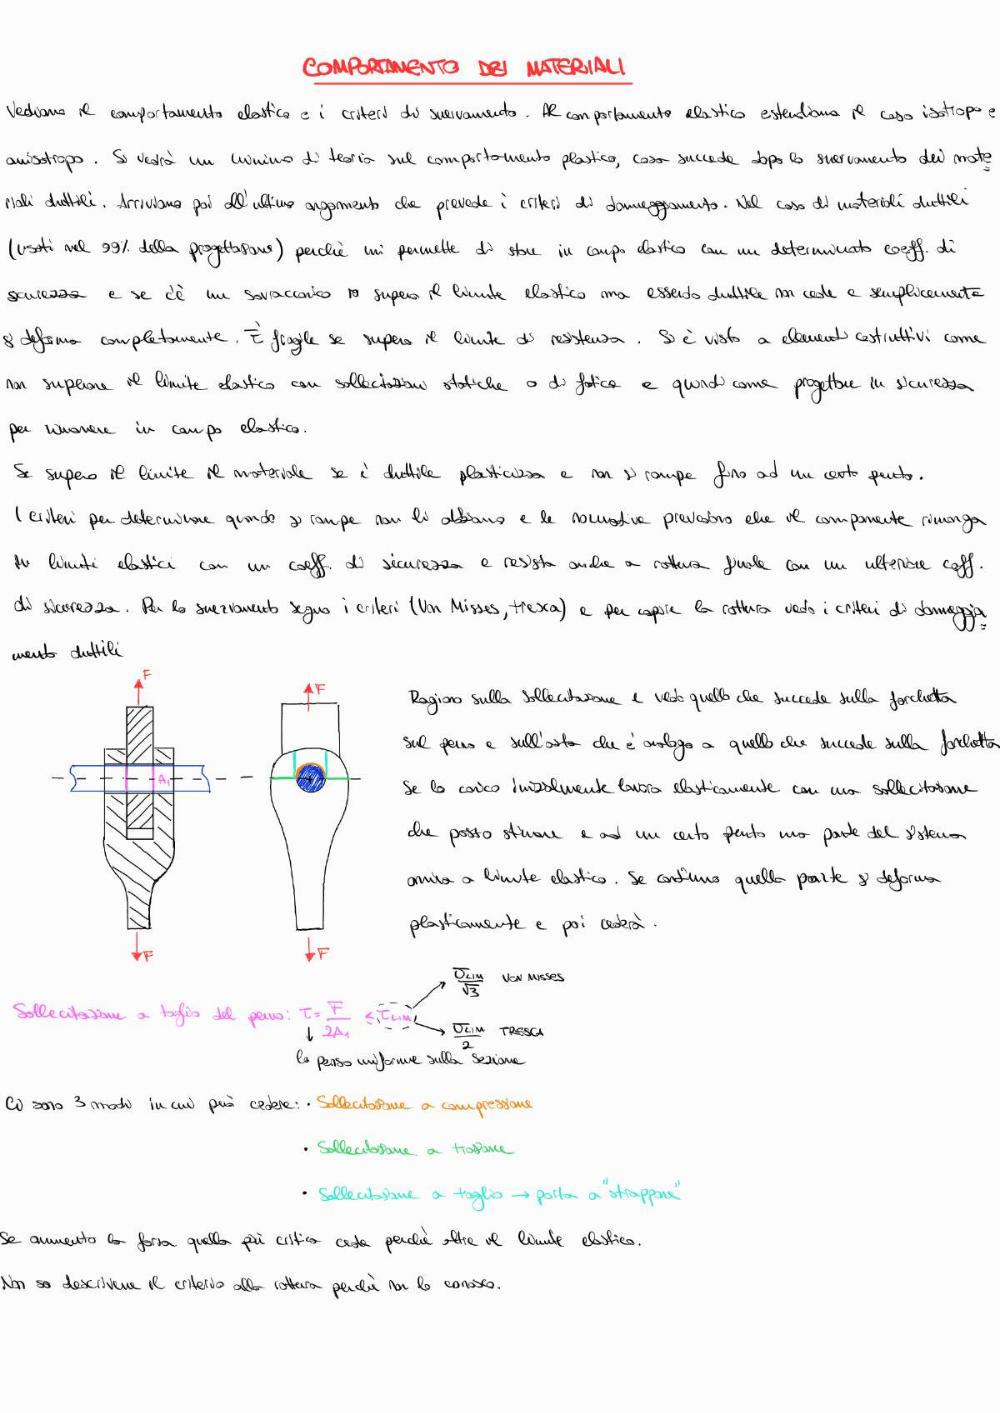 COMPORTAMENTO DEI MATERIALI
Vediamo il comportamento elastico e i criteri di snervamento. Al comportamento elastico estendiamo il caso isotropo e
anisotropo. Si vedrà un minimo di teoria sul comportamento plastico, cosa succede dopo lo snervamento dei mate
riali duttili. Arriviamo poi all'ultimo argomento che prevede i criteri di danneggiamento. Nel caso di materiali duttili
(usati nel 99% della progettazione) perchè mi permette di stare in campo elastico con un determinato coeff. di
sicurezza e se c'è un sovraccarico supero il limite elastico ma essendo duttile non cede e semplicemente
si deforma completamente. È fragile se supero il limite di resistenza. Si è visto a elementi costruttivi come
non superare il limite elastico con sollecitazioni statiche o di fatica e quindi come progettare in sicurezza
per rimanere in campo elastico.
Se supero il limite il materiale se è duttile plasticizza e non si rompe fino ad un certo punto.
I criteri per determinare quando si rompe non li abbiamo e le normative prevedono che il componente rimanga
in limiti elastici con un coeff. di sicurezza e resista anche a rottura finale con un ulteriore coeff.
di sicurezza. Per lo snervamento seguo i criteri (Von Misses, tresca) e per capire la rottura vedo i criteri di danneggia
mento duttili
F
F
A₁
F
F
Ragiono sulla sollecitazione e vedo quello che succede sulla forchetta
sul perno e sull'asta che è analogo a quello che succede sulla forchetta
Se lo carico inizialmente lavora elasticamente con una sollecitazione
che posso stimare e ad un certo punto una parte del sistema
arriva a limite elastico. Se continuo quella parte si deforma
plasticamente e poi cederà.
σLIM/√3 VON MISSES
Sollecitazione a taglio del perno: τ = F/2A₁ ≤ τLIM
σLIM/2 TRESCA
lo penso uniforme sulla sezione
Ci sono 3 modi in cui può cedere: • Sollecitazione a compressione
• Sollecitazione a trazione
• Sollecitazione a taglio → porta a "strappare"
Se aumento la forza quella più critica cede perchè oltre il limite elastico.
Non so descrivere il criterio alla rottura perchè non lo conosco.